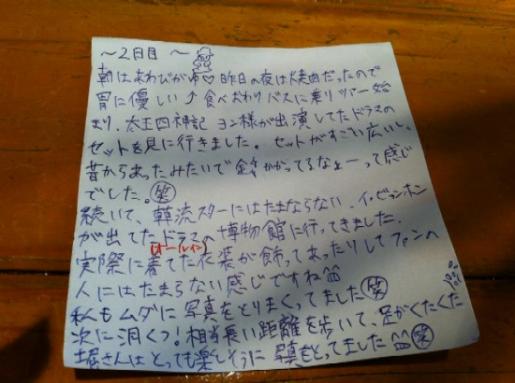 ~2日目~
朝はあわびがゆ♡昨日の夜は焼肉だったので
胃に優しい♪食べおわりバスに乗りツアー始
まり、太王四神記 ヨン様が出演してたドラマの
セットを見に行きました。セットがすごい広いし、
昔からあったみたいで金かかってるなぁーって感じ
でした。笑
続いて、韓流スターにはたまらない、イ・ビョンホン
が出てたドラマの博物館に行ってきました。
(オールイン)
実際に着てた衣装が飾ってあったりしてファンの
人にはたまらない感じですね
私もムダに写真をとりまくってました笑
次に洞くつ!相当長い距離を歩いて、足がくたくた
堀さんはとっても楽しそうに写真をとってました笑